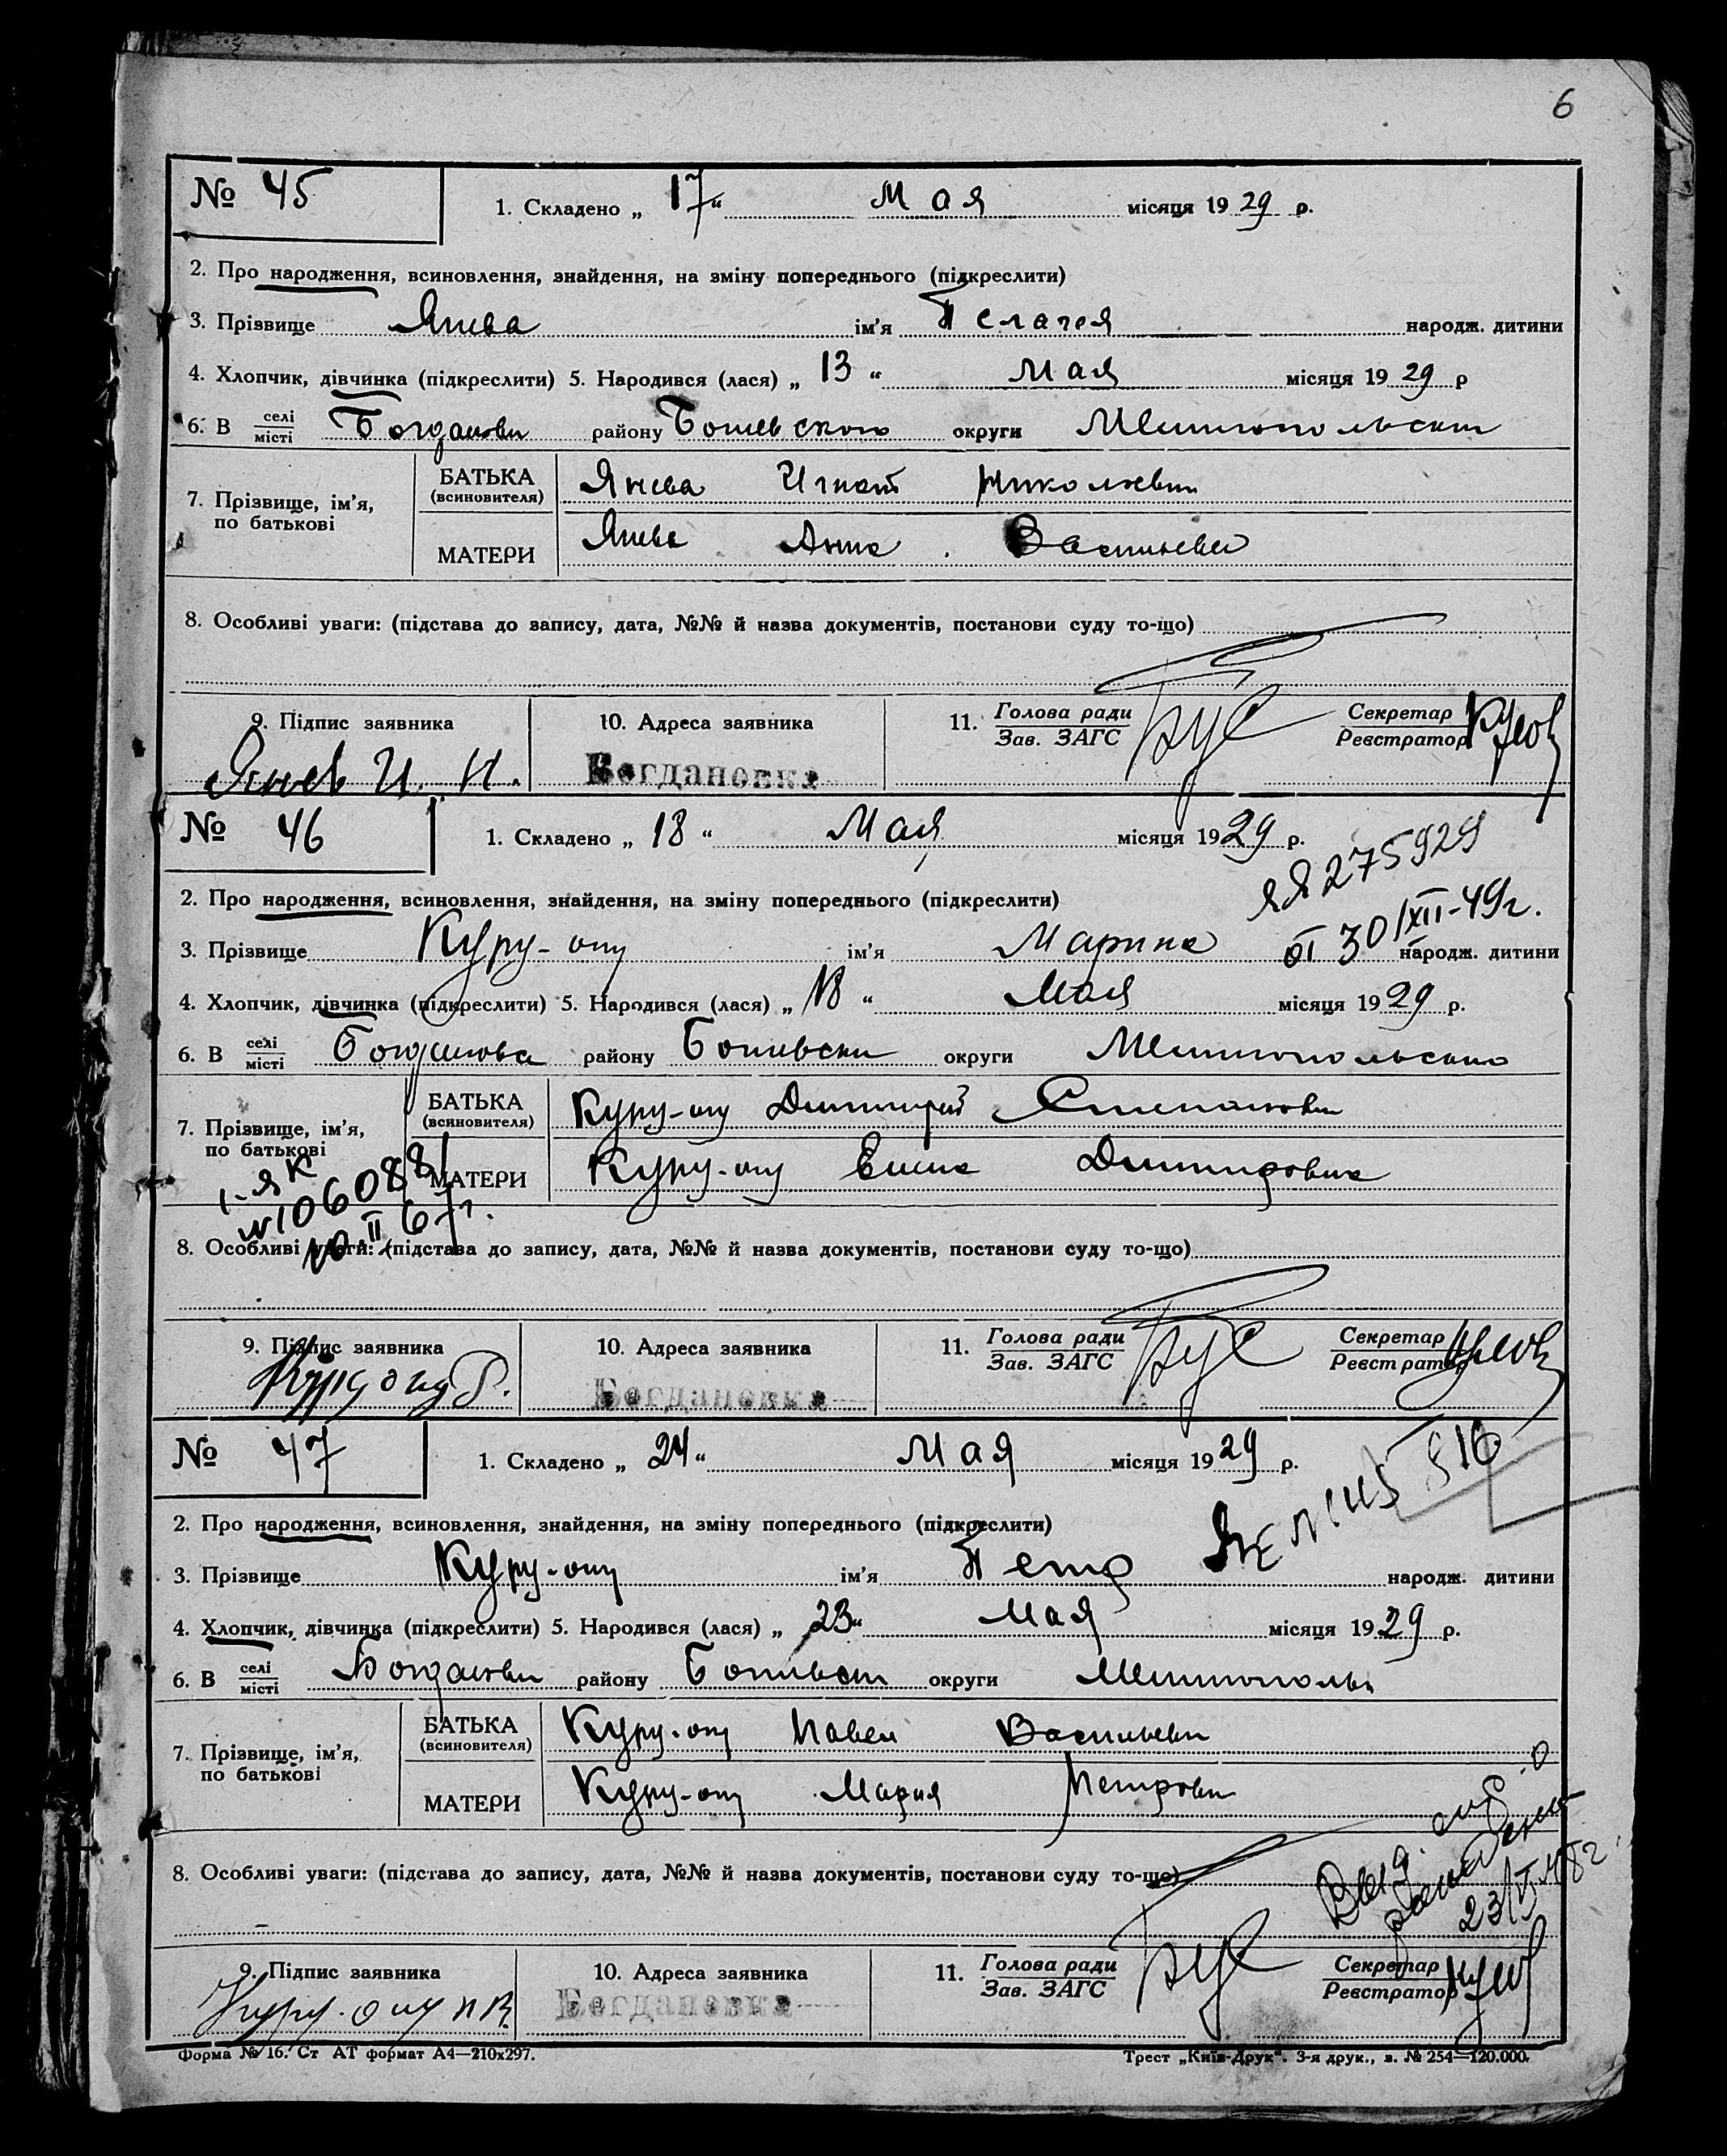 6
№ 45
1. Складено „ 17 “ Мая місяця 1929 р.
2. Про народження, всиновлення, знайдення, на зміну попереднього (підкреслити)
3. Прізвище Янева ім'я Пелагея народж. дитини
4. Хлопчик, дівчинка (підкреслити) 5. Народився (лася) „ 13 “ Мая місяця 1929 р
6. В селі місті району округи
7. Прізвище, ім'я, по батькові
БАТЬКА (всиновителя) Янева Игнат
МАТЕРИ Янева Анна
8. Особливі уваги: (підстава до запису, дата, №№ й назва документів, постанови суду то-що)
9. Підпис заявника 10. Адреса заявника 11. Голова ради Зав. ЗАГС Секретар Реєстратор
Янев И. Н. Богдановка
№ 46
1. Складено „ 18 “ Мая місяця 1929 р.
ЯЯ 275929
2. Про народження, всиновлення, знайдення, на зміну попереднього (підкреслити)
от 30/XII-49г.
3. Прізвище Куру-оглу ім'я Марина народж. дитини
4. Хлопчик, дівчинка (підкреслити) 5. Народився (лася) „ 18 “ Мая місяця 1929 р.
6. В селі місті району округи
7. Прізвище, ім'я, по батькові
БАТЬКА (всиновителя) Куру-оглу Дмитрий Степанович
МАТЕРИ Куру-оглу Елена Дмитровна
8. Особливі уваги: (підстава до запису, дата, №№ й назва документів, постанови суду то-що)
9. Підпис заявника 10. Адреса заявника 11. Голова ради Зав. ЗАГС Секретар Реєстратор
Богдановка
№ 47
1. Складено „ 24 “ Мая місяця 1929 р.
2. Про народження, всиновлення, знайдення, на зміну попереднього (підкреслити)
3. Прізвище Куру-оглу ім'я Петр народж. дитини
4. Хлопчик, дівчинка (підкреслити) 5. Народився (лася) „ 23 “ Мая місяця 1929 р.
6. В селі місті району округи
7. Прізвище, ім'я, по батькові
БАТЬКА (всиновителя) Куру-оглу Павел
МАТЕРИ Куру-оглу Мария
8. Особливі уваги: (підстава до запису, дата, №№ й назва документів, постанови суду то-що)
9. Підпис заявника 10. Адреса заявника 11. Голова ради Зав. ЗАГС Секретар Реєстратор
Богдановка
Форма № 16. Ст АТ формат А4—210х297. Трест „Київ-Друк“. 3-я друк., в. № 254—120.000.